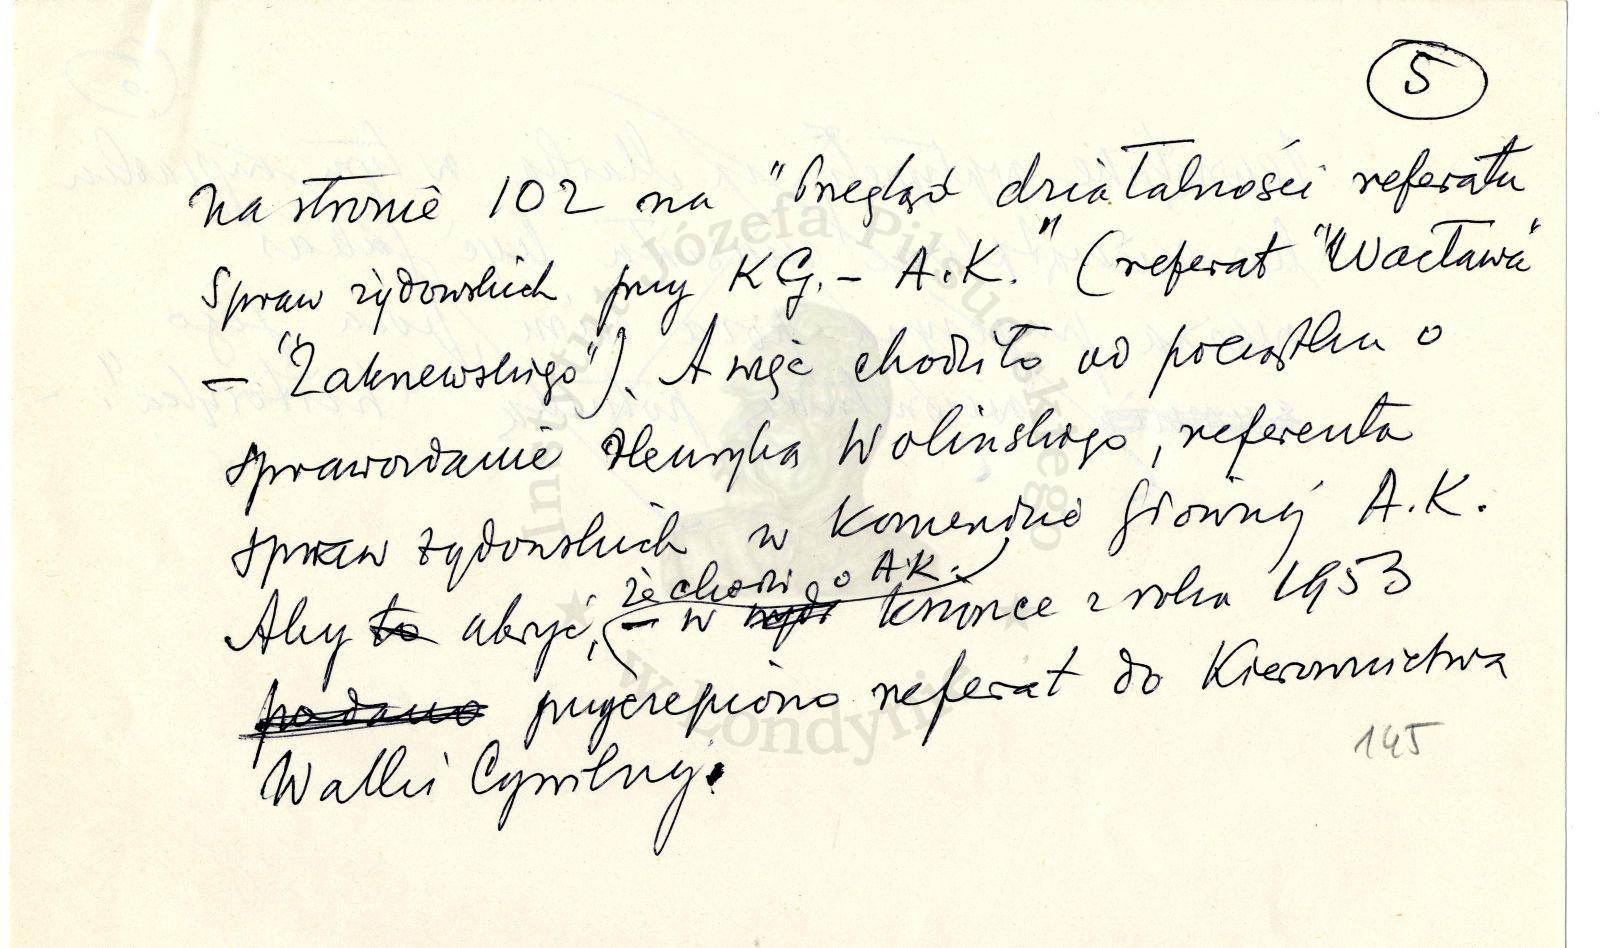 5
na stronie 102 na "Przegląd działalności referatu
spraw żydowskich przy KG.- A.K." (referat "Wacława"
- "Zakrzewskiego"). A więc chodziło od początku o
sprawozdanie Henryka Wolińskiego, referenta
spraw żydowskich w Komendzie Głównej A.K.
że chodzi o A.K.
Aby to ukryć, - w książce z roku 1953
podano przyczepiono referat do Kierownictwa
Walki Cywilnej.
145
Instytut Józefa Piłsudskiego
w Londynie